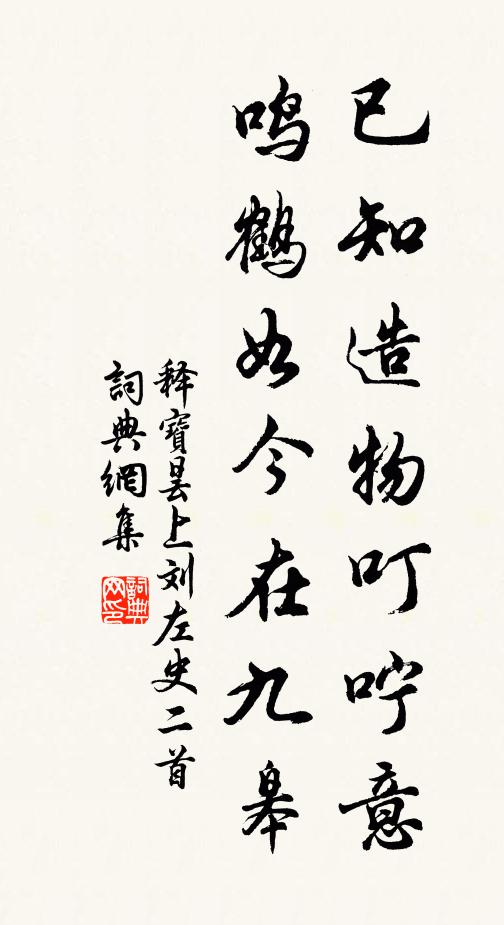 已知造物叮咛意
鸣鹤如今在九皋
释寶昙上刘左史二首
詞典網集
詞典
网印